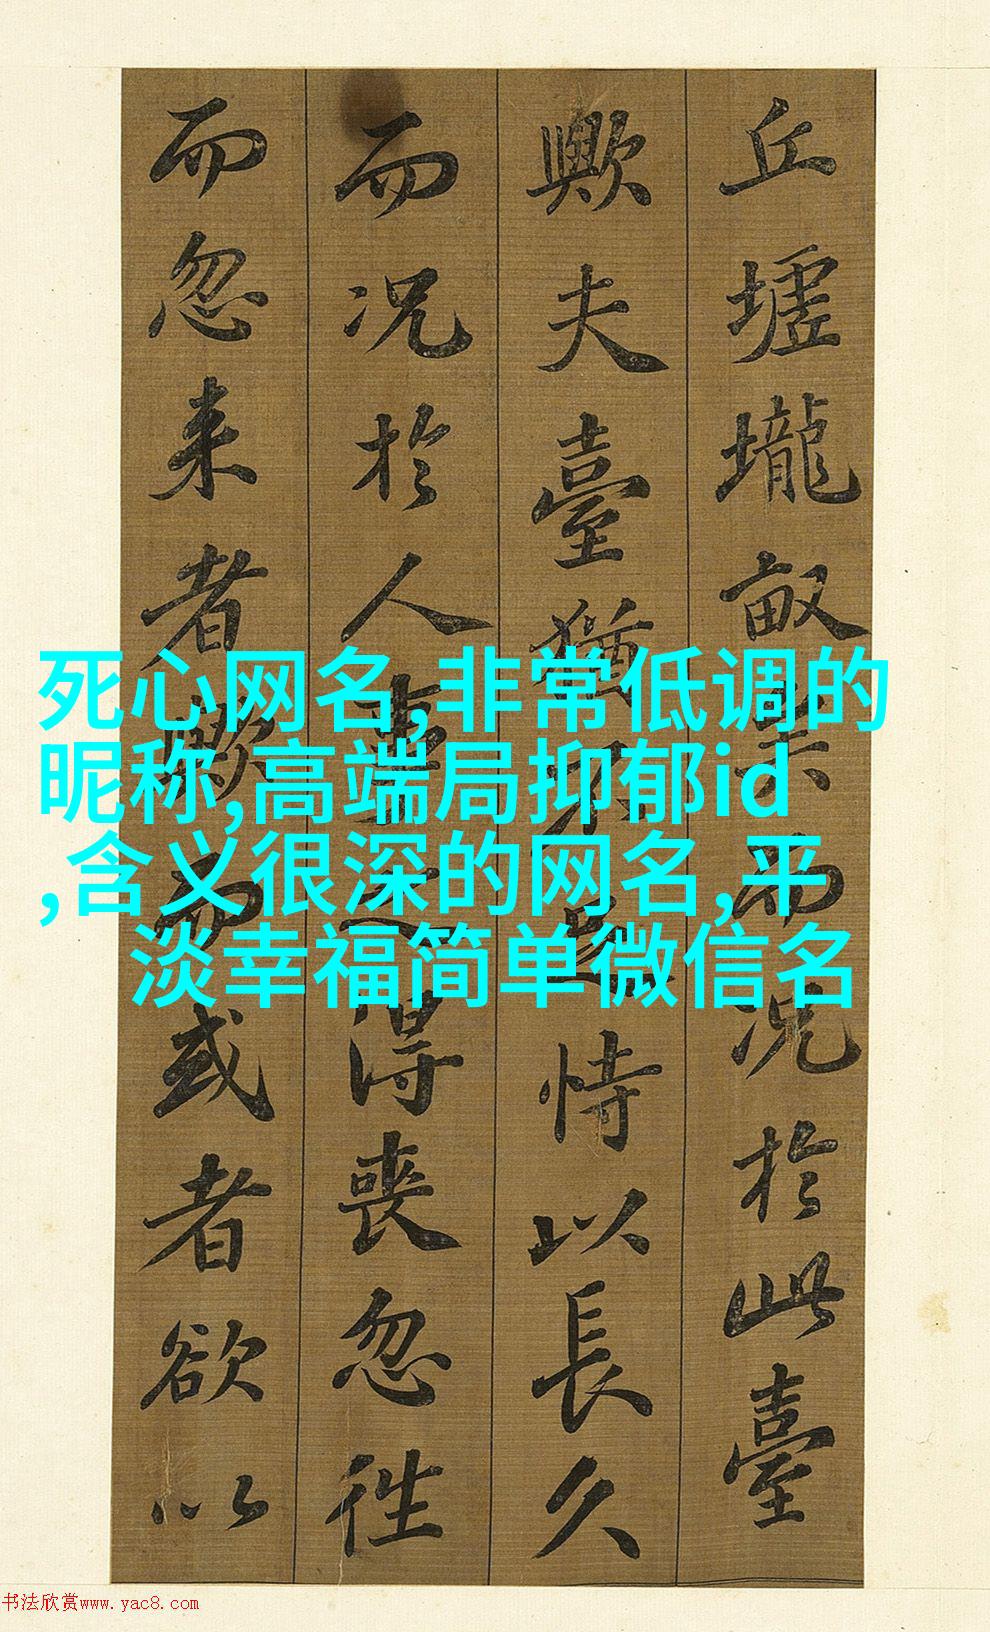 死心网名,非常低调的
昵称,高端局抑郁id
,含义很深的网名,平
淡幸福简单微信名
丘墟壠畝矣而况於此臺
歟夫臺猶不足恃以長久
而况於人事之得喪忽徃
而忽来者歟而或者欲以
书法欣赏www.yac8.com